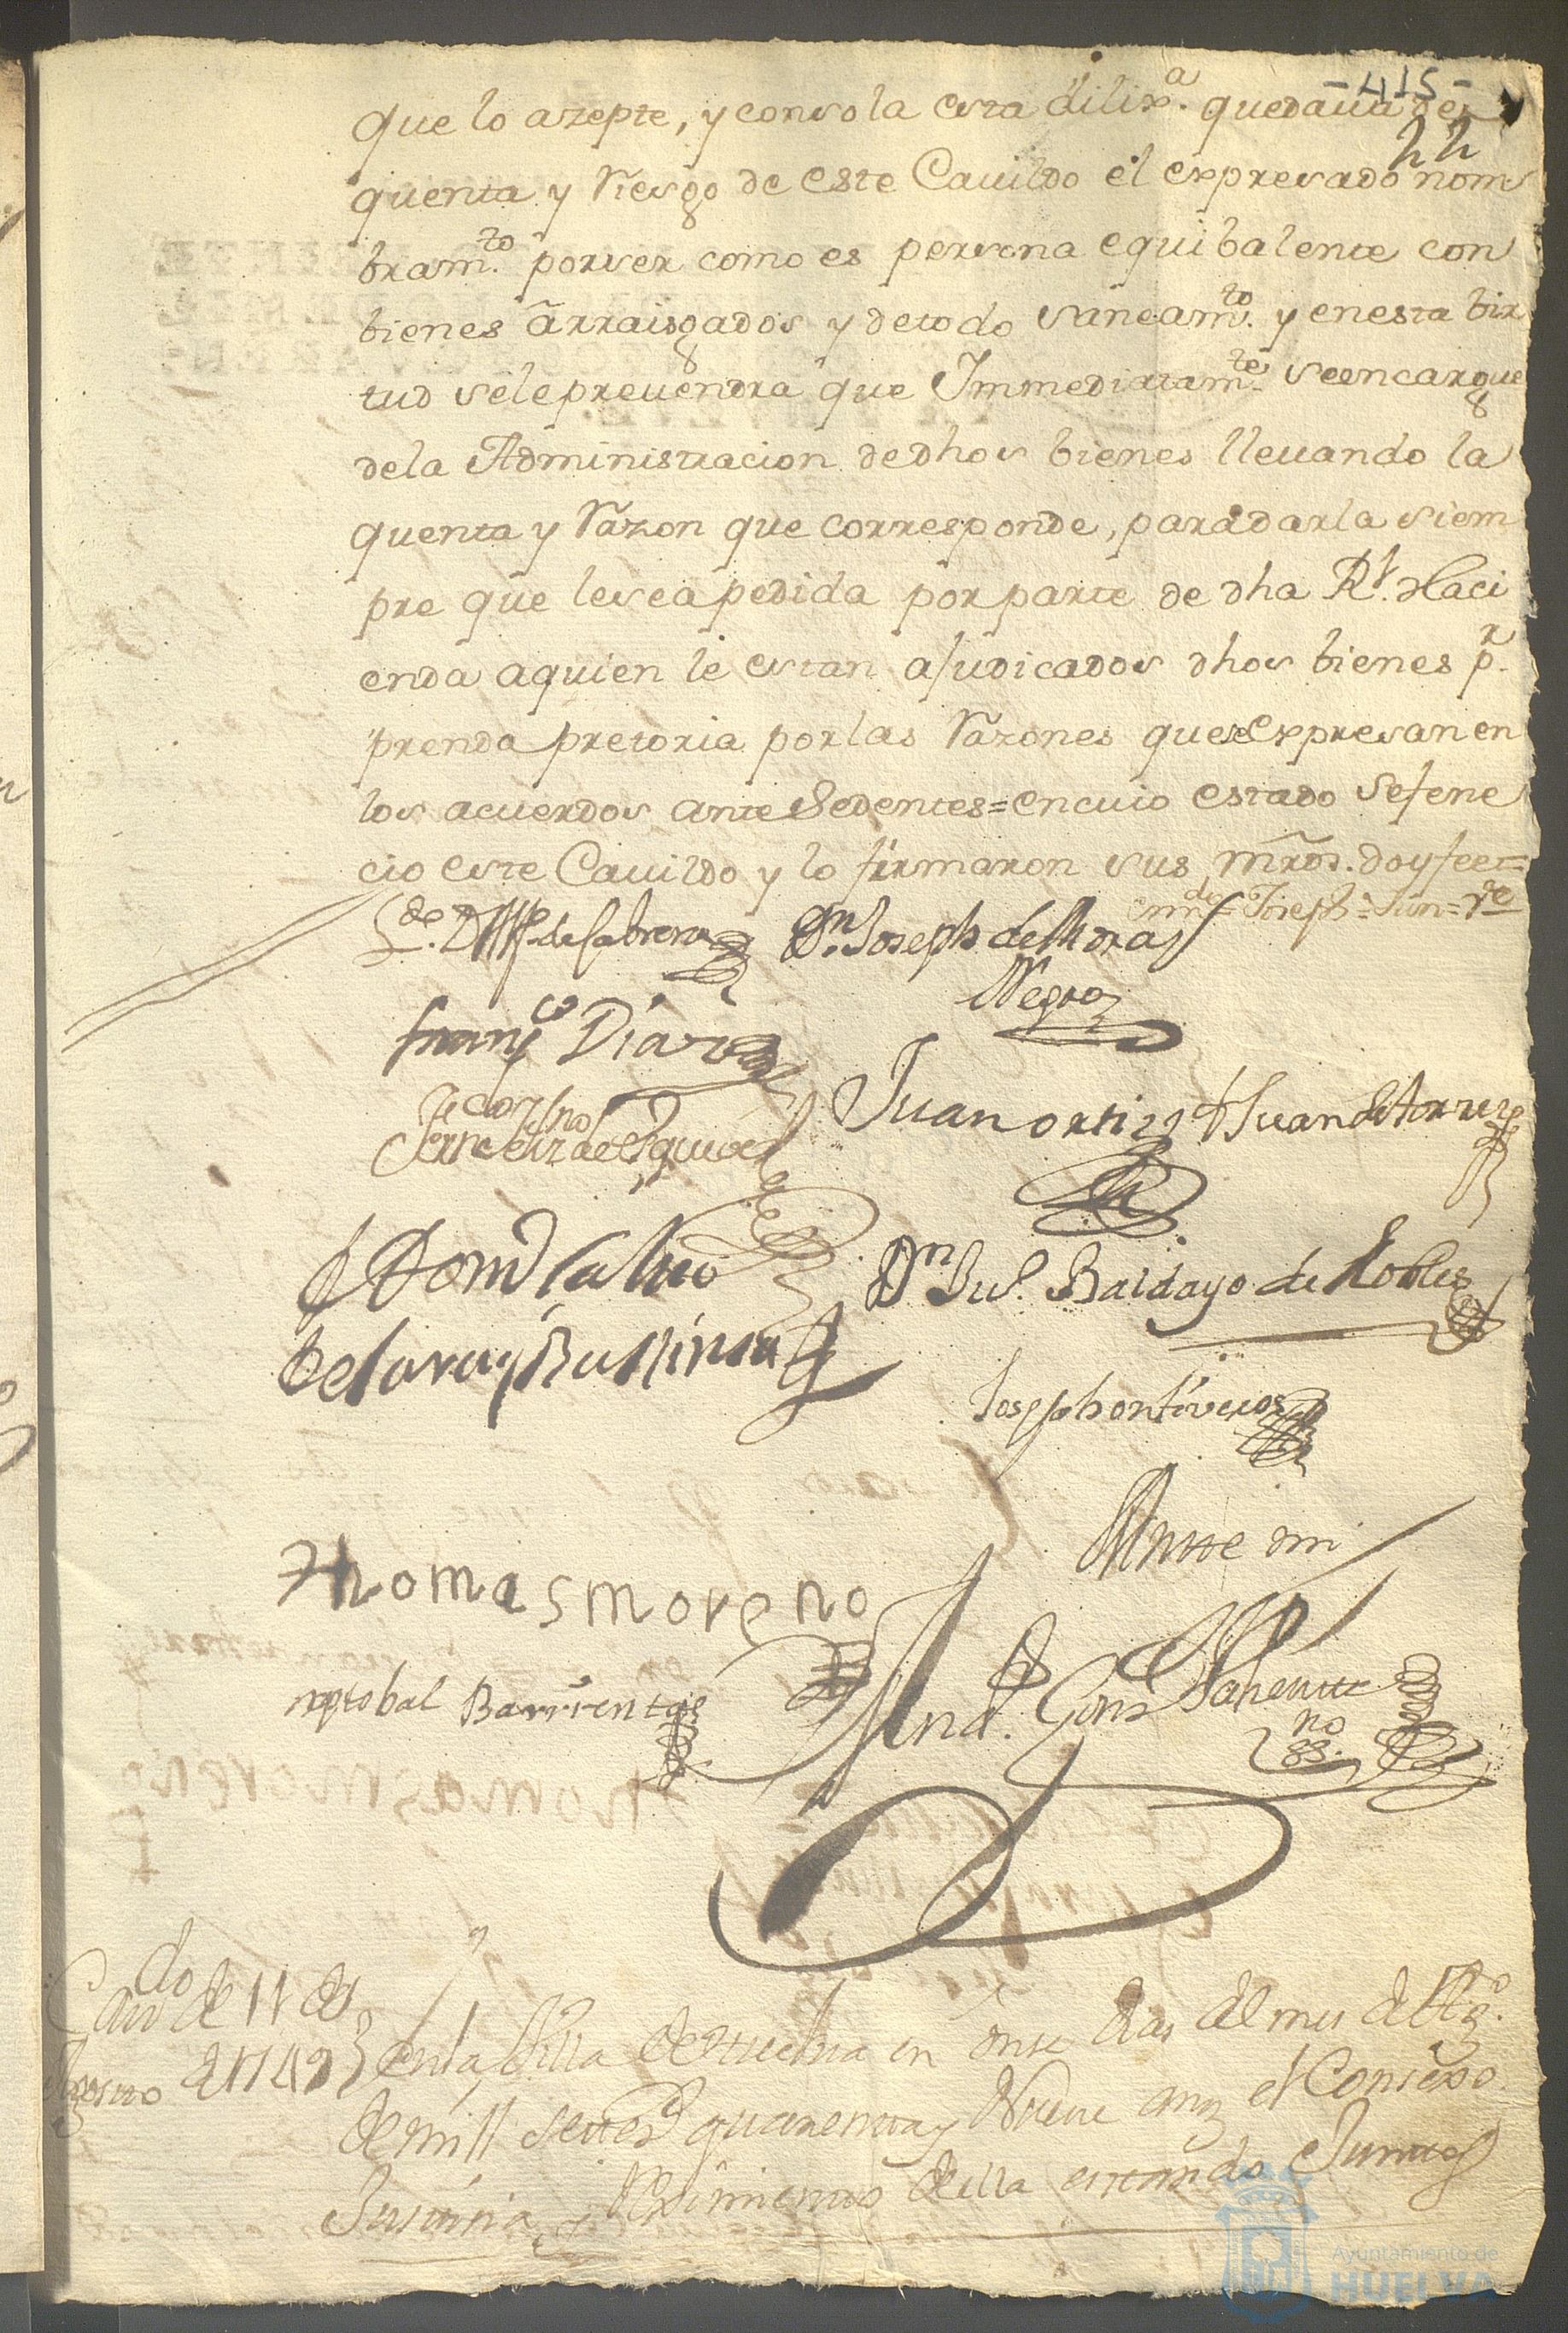 -415-
que lo azepte, y con solo esta dilixª. quedaua de
44
quenta y Riesgo de este Cauildo el expresado nom
bramto. por ser como es persona equibalente con
bienes arraisgados y de todo saneamto. y en esta bir
tud se le preuendra que Immediatamte. se encargue
de la Administracion de dhos bienes lleuando la
quenta y Razon que corresponde, para darla siem
pre que le sea pedida por parte de dha Rl. Haci
enda a quien le estan ajudicados dhos bienes pr.
prenda pretoria por las Razones que se Expresan en
los acuerdos antesedentes = en cuio estado se fene
cio este Cauildo y lo firmaron sus mrds. doy fee =
enmdo = Joseph = Jun = Ve
Ldo. de Cabrera Dn. Joseph de Mora
Negro
Franco Diaz
Juan ortiz Juan de torres
Domo Caluo Dn Jua. Baldayo de Robles
Joseph ontiveros
Antte mi
Thomas moreno
xptobal Barrientos
no
Caudo de 11 de
Agosto de 1749 } en la Villa de Huelva en onse dias del mes de Agto.
de mill settesos quarentta y Nueve años el Consexo
Justisia y Reximientto de ella estando Junttos
Ayuntamiento de
HUELVA